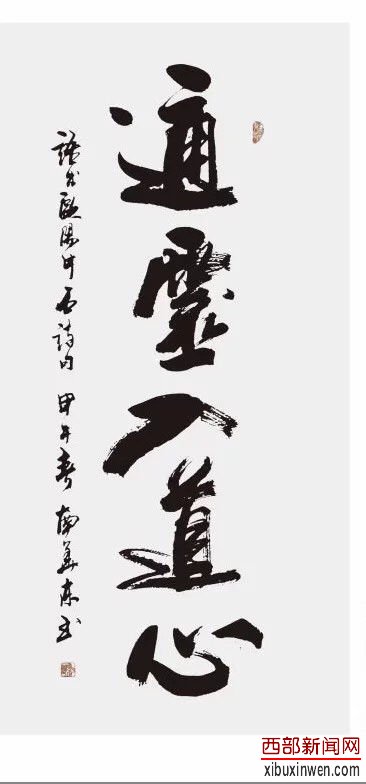 通靈入道心
語出歐陽中石詩句 甲午春 南華東书
西部新闻网
xibuxinwen.com